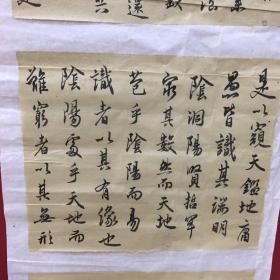 是以窺天鑑地庸
愚皆識其端明
陰洞陽賢哲罕
窮其數然而天地
苞乎陰陽而易
識者以其有像也
陰陽處乎天地而
難窮者以其無形